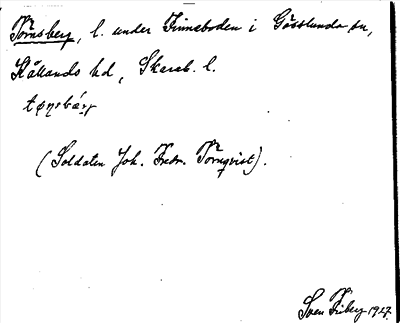 Törnsberg, l. under Finnaboden i Gösslunda sn,
Kållands hd, Skarab. l.
(Soldaten Joh. Fredr. Törnqvist).
Sven Friberg 1927.